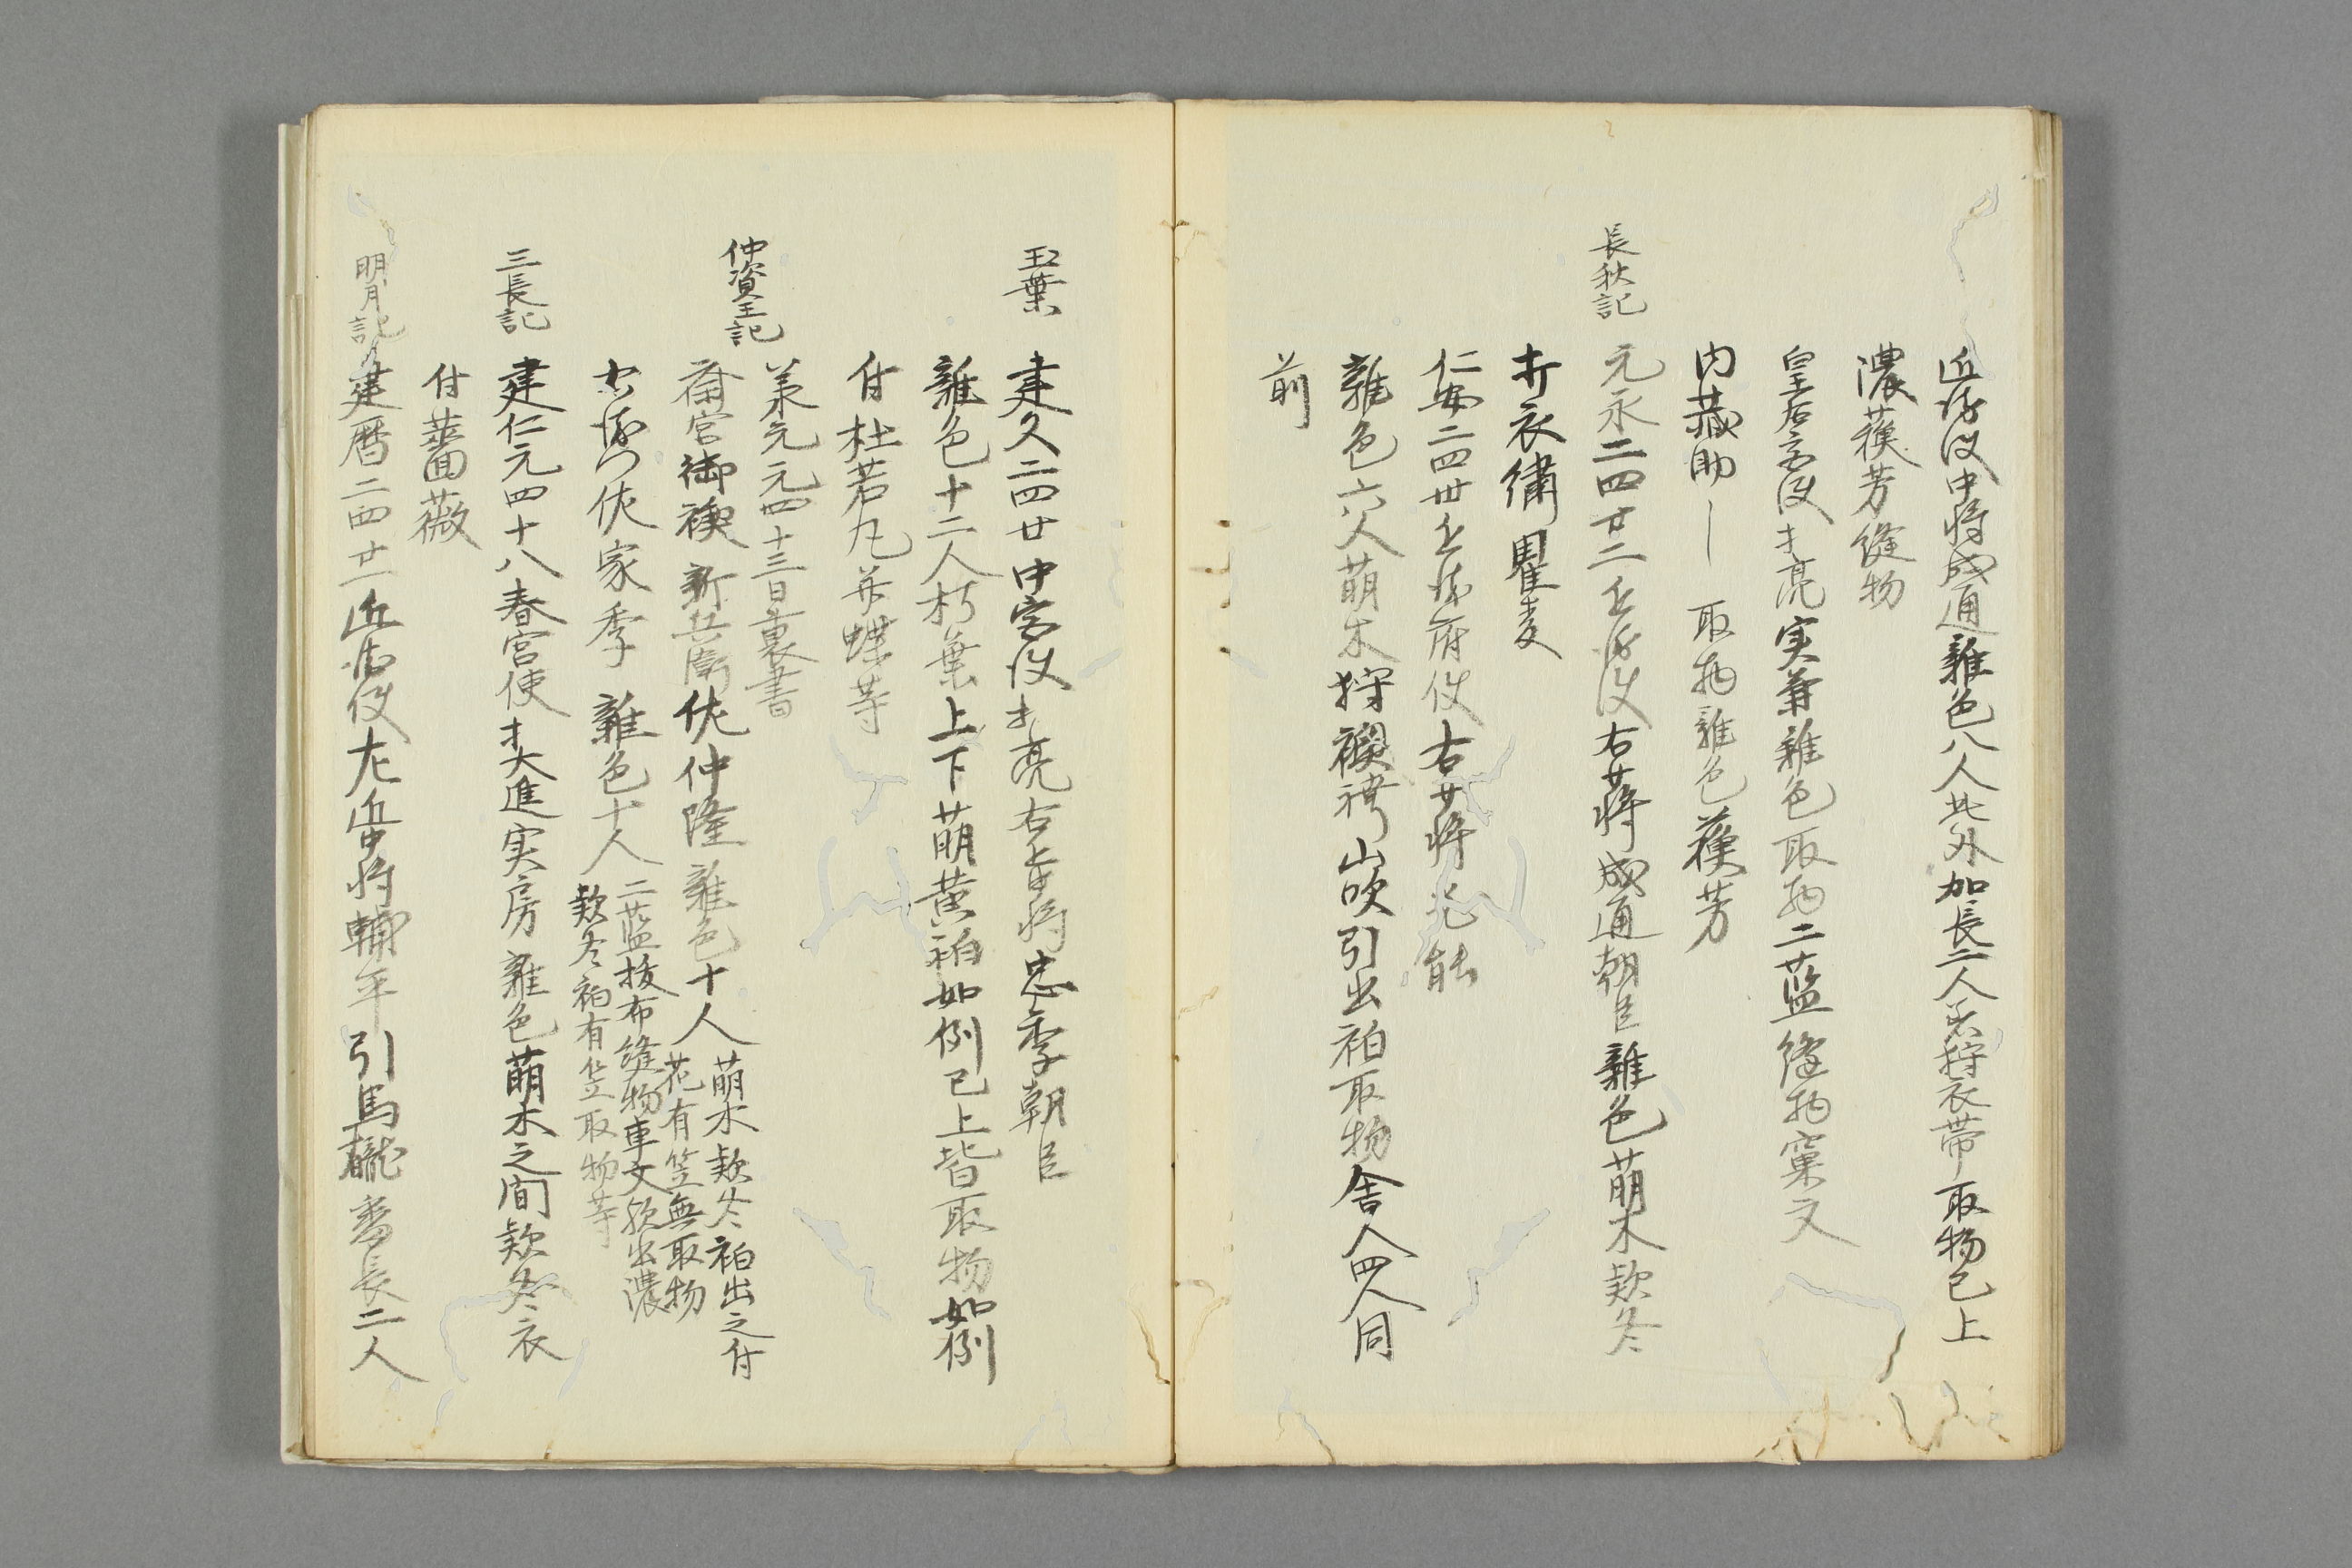 近衛使中将成通雑色八人此外加長二人着狩衣帯取物已上
濃蘓芳縫物
皇后宮使才亮実兼雑色取物二藍縫物窠文
内蔵助〡 取物雑色蘓芳
長秋記
元永二四廿二近衛使右少将成通朝臣雑色萌木款冬
打衣繍瞿麦
仁安二四卅近衛府使右少将光能
雑色六人萌木狩襖袴山吹引出衵取物舎人四人同
前
玉葉
建久二四廿中宮使才亮右中将忠季朝臣
雑色十二人朽葉上下萌黄衵如例已上皆取物如例
付杜若丸并蝶等
仲資王記
承元元四十三日裏書
斎宮御禊 新兵衛佐仲隆雑色十人
萌木款冬衵出之付
花有笠無取物
右衛門佐家季 雑色十人
二藍狭布縫物車文款出濃
款冬衵有笠取物等
三長記
建仁元四十八春宮使才大進実房雑色萌木之間款冬衣
付薔薇
明月記
建暦二四廿一近衛使左近中将輔平 引馬櫳番長二人